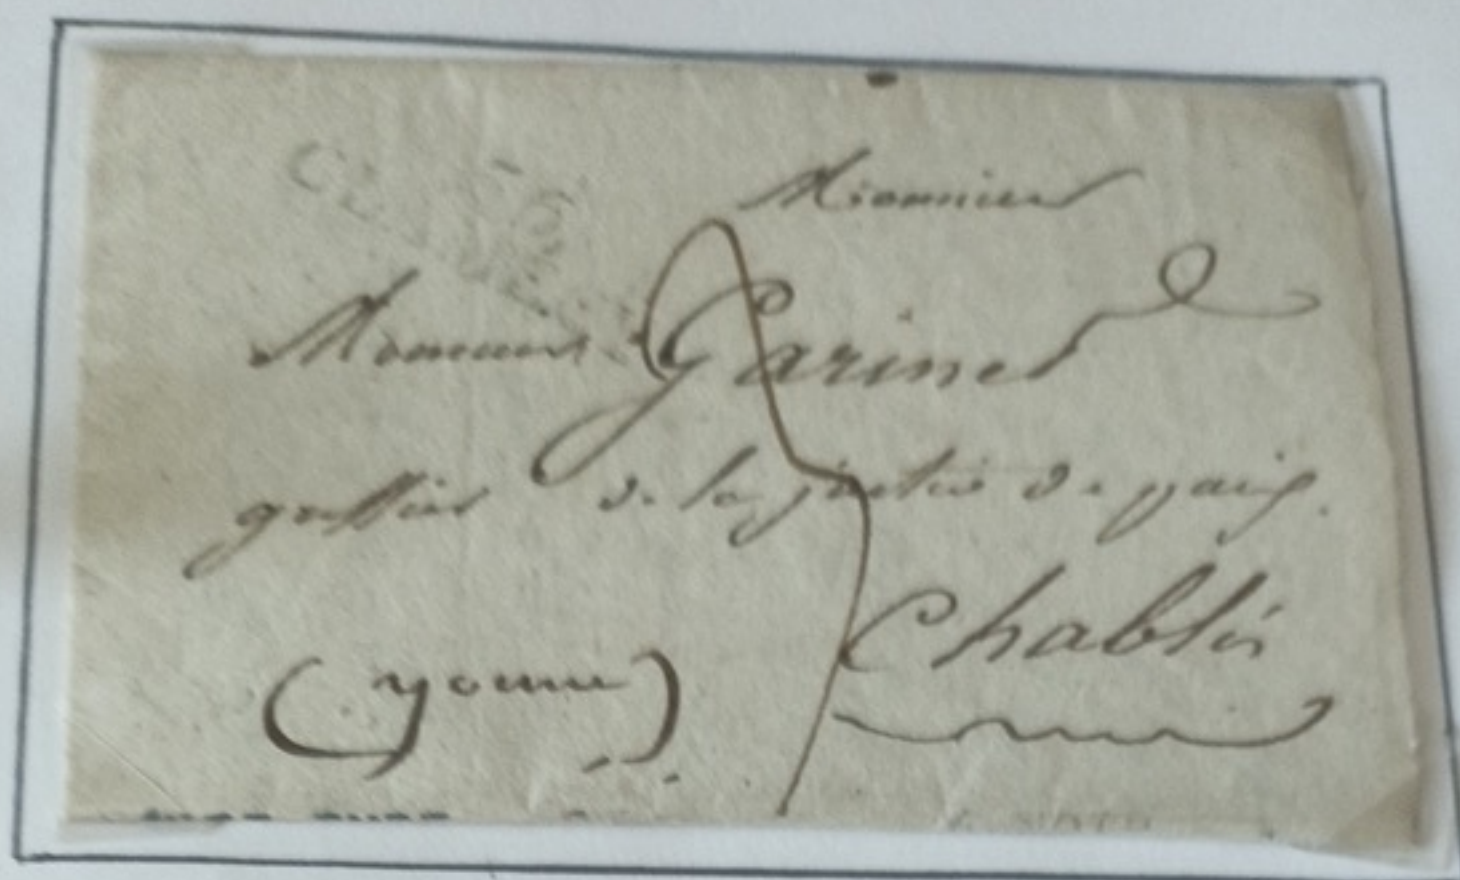 Monsieur
Monsieur Garines
greffier de la justice de paix.
Chablis
(yonne)